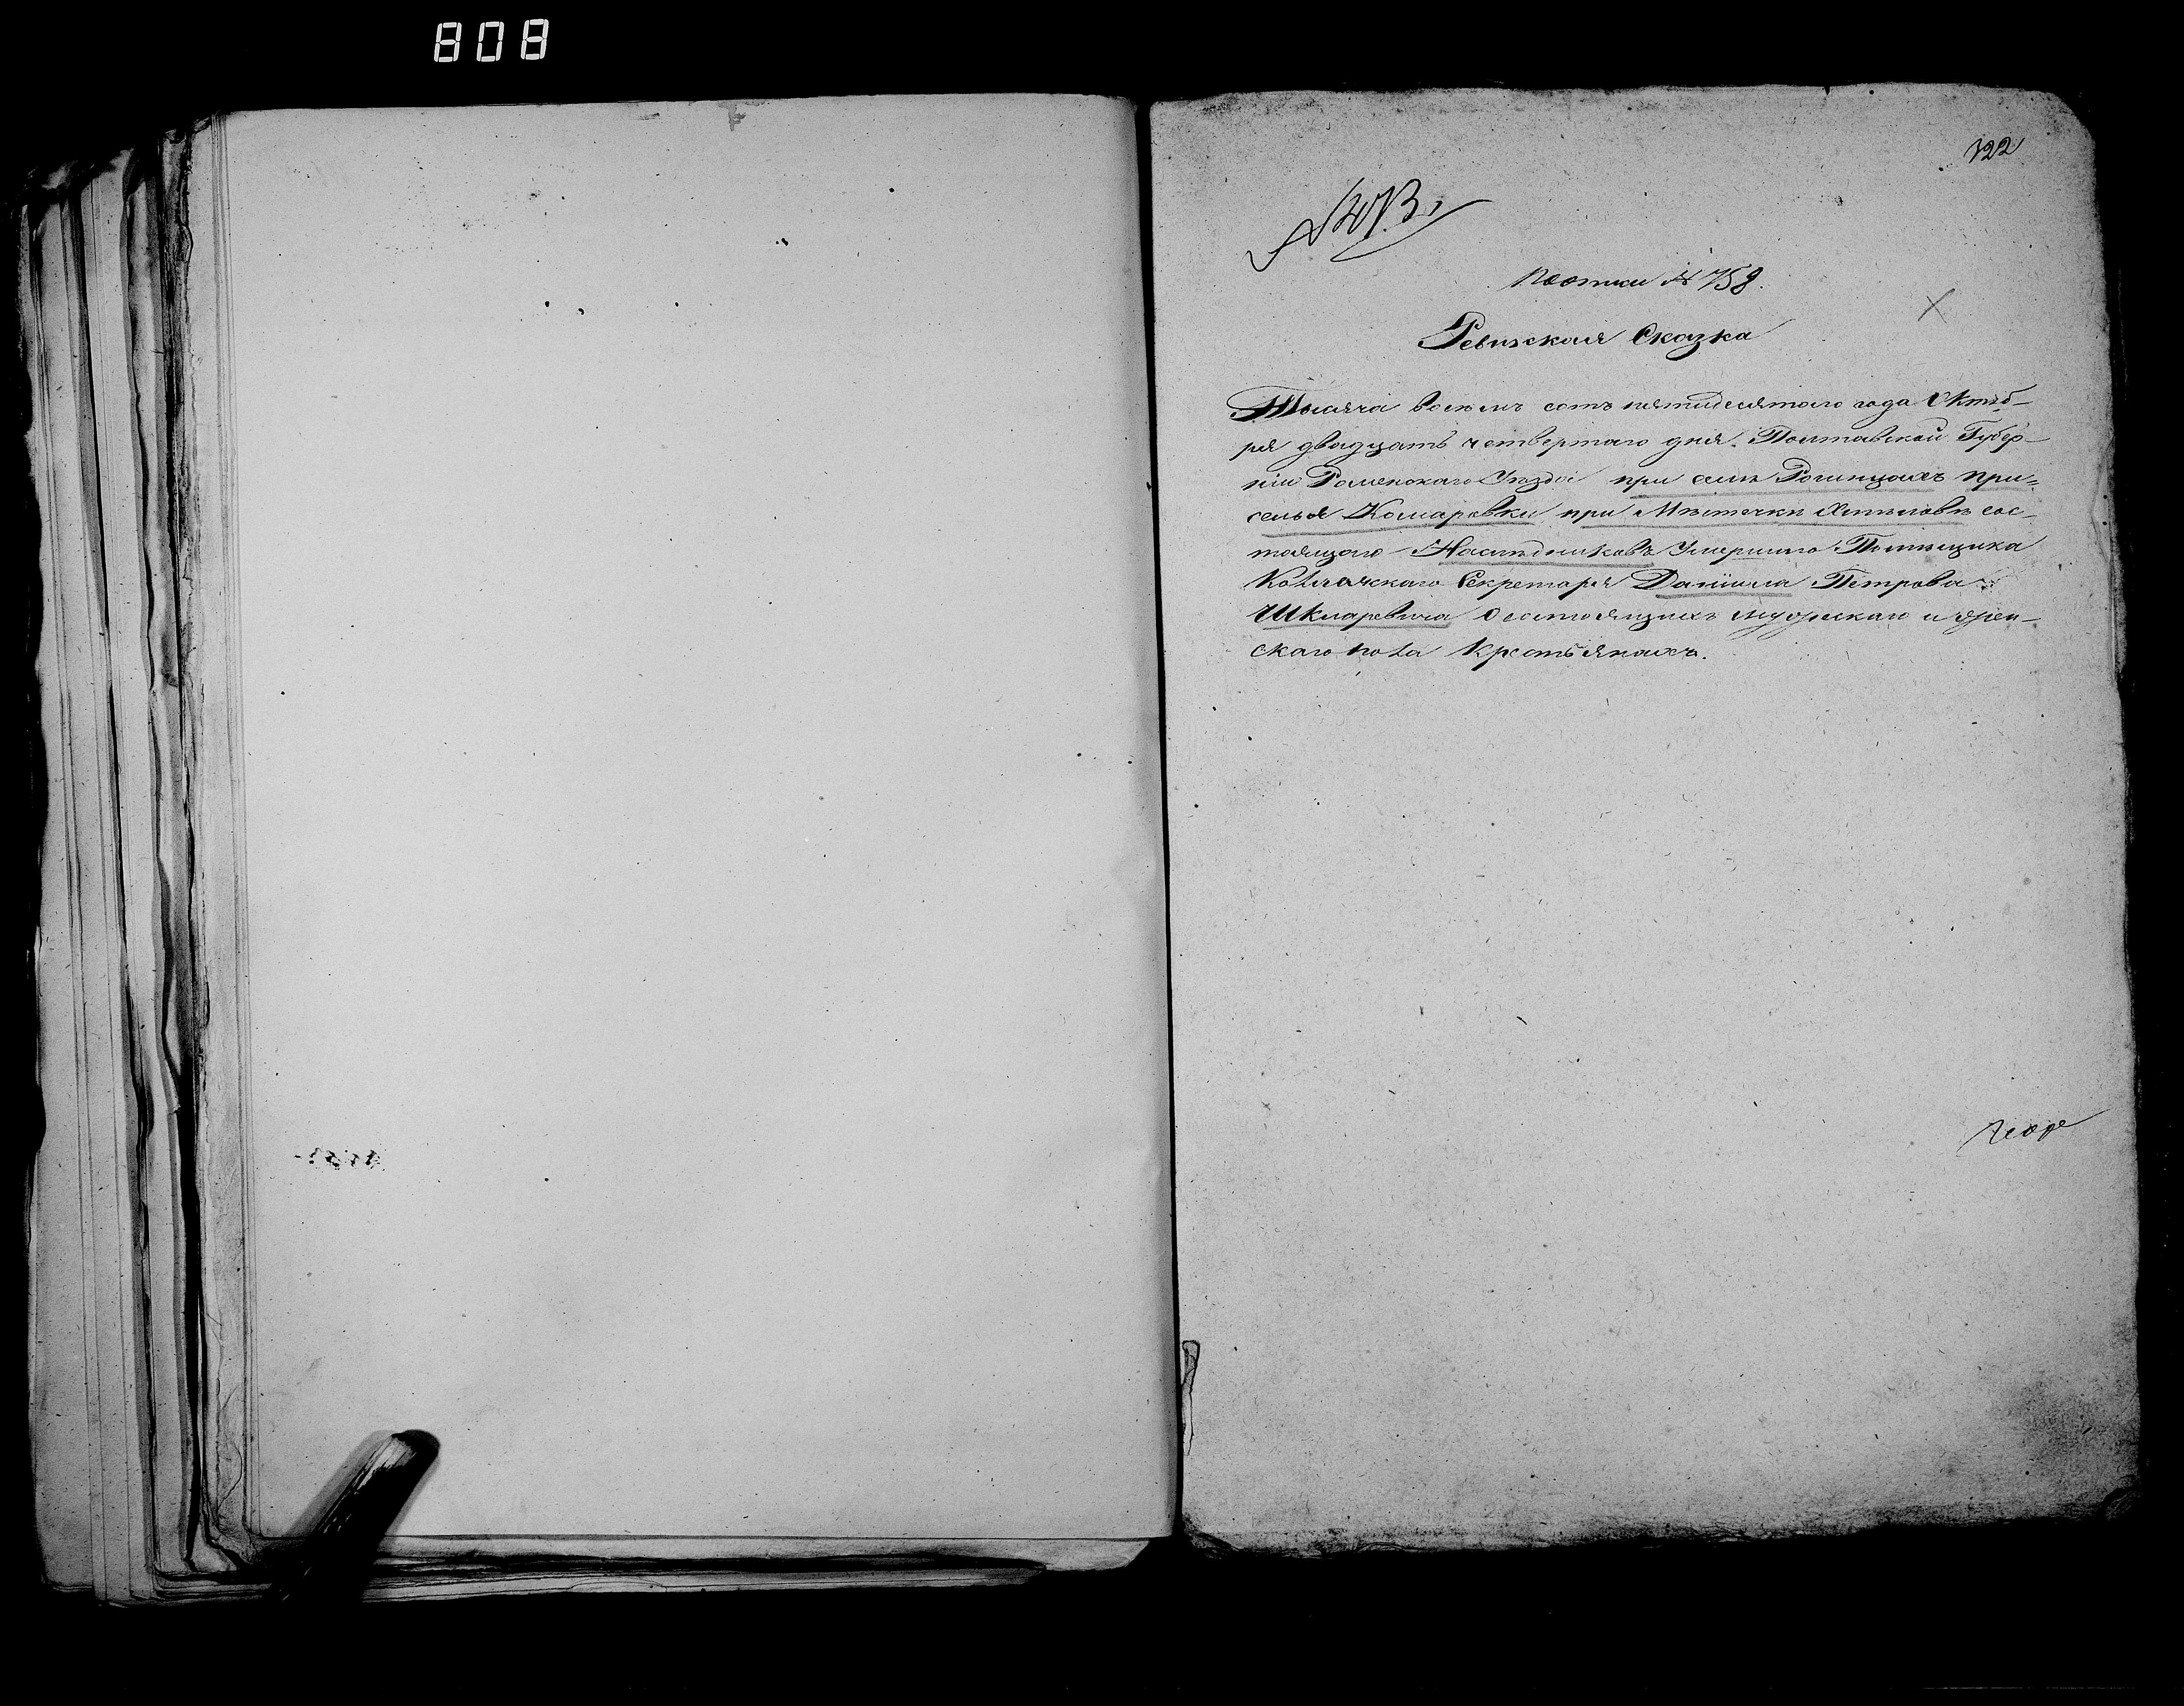 808
122
№ 473.
почты № 758.
Ревизская Сказка
Тысяча восемь сотъ пятидесятого года Октяб-
ря двадцать четвертого дня. Полтавской Губер-
ніи Роменскаго Уезда при селѣ Рогинцахъ при=
селья Комаровки при Мѣстечкѣ Хмѣловѣ сос-
тоящого Наслѣдниковъ Умершого Помѣщика
Коллежскаго Секретаря Даніила Петрова
Шкларевича О состоящихъ мужескаго и жен-
скаго пола Крестьянахъ.